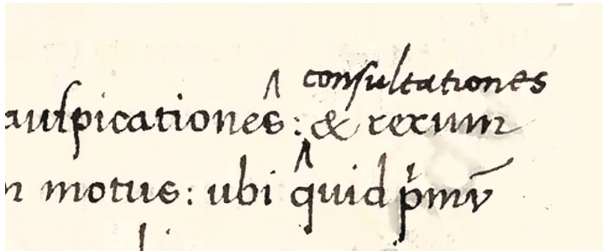 consultationes
auspicationes: & rerum
motus: ubi quid pͥmũ